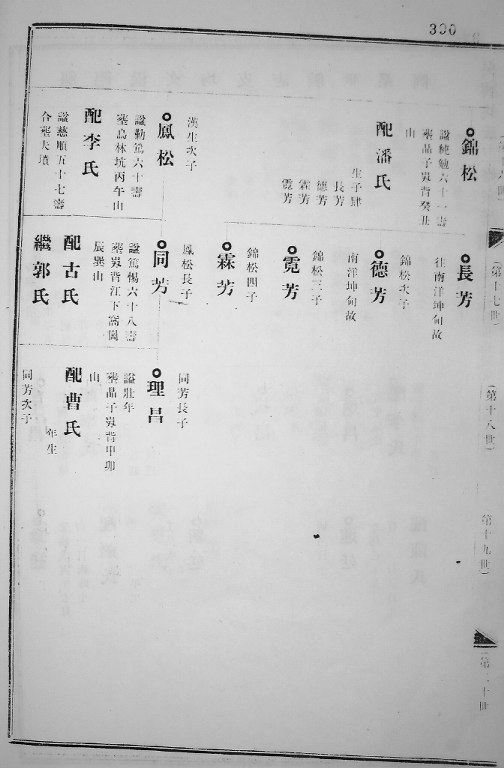 300
第十七世
錦松
諡純勉六十一壽
塟晶子嶺背癸丑
山
配潘氏
生子肆
長芳
德芳
霖芳
霓芳
漢生次子
鳳松
諡勤篤六十壽
塟烏林坑丙午山
配李氏
諡慈順五十七壽
合塟夫墳
第十八世
長芳
往南洋坤甸故
錦松次子
德芳
南洋坤甸故
錦松三子
霓芳
錦松四子
霖芳
鳳松長子
同芳
諡篤惕六十八壽
塟嶺背江下窩
辰巽山
配古氏
繼郭氏
第十九世
同芳長子
理昌
諡壯年
塟晶子嶺背甲卯
山
配曹氏
年生
同芳次子
第二十世